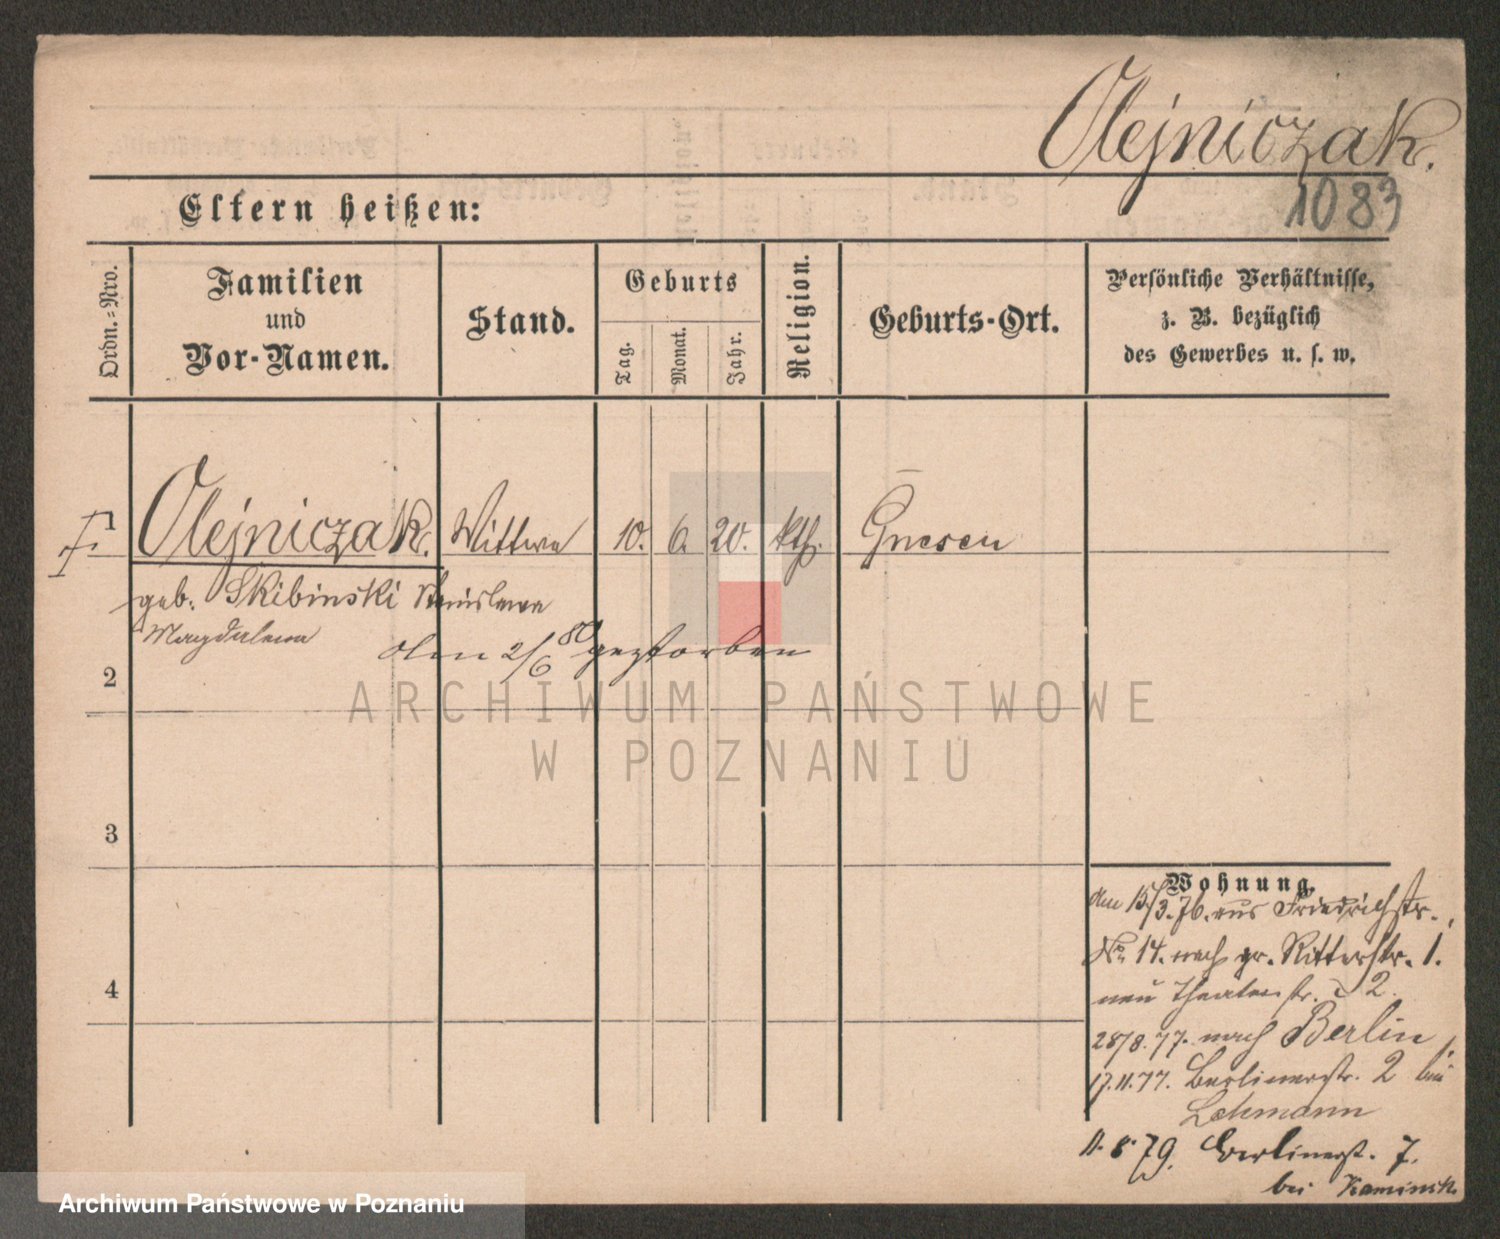 Olejniczak.
1083
Eltern heißen:
Ordn.-Nro.
Familien
und
Vor-Namen.
Stand.
Geburts
Tag.
Monat.
Jahr.
Religion.
Geburts-Ort.
Persönliche Verhältnisse,
z. B. bezüglich
des Gewerbes u. s. w.
1 Olejniczak. Wittwe 10. 6. 20. kth. Gnesen
geb. Skibinski Stanislawa
Magdalena
den 2/6 80 gestorben
2
3
4
Wohnung.
den 15/3.76. aus Friedrichstr.
No 14. nach gr. Ritterstr. 1.
neu Theaterstr. 2.
28/8.77. nach Berlin
17.11.77. Berlinerstr. 2 bei
Lehmann
11.8.79. Berlinerst. 7.
bei Kaminsk
ARCHIWUM PAŃSTWOWE
W POZNANIU
Archiwum Państwowe w Poznaniu